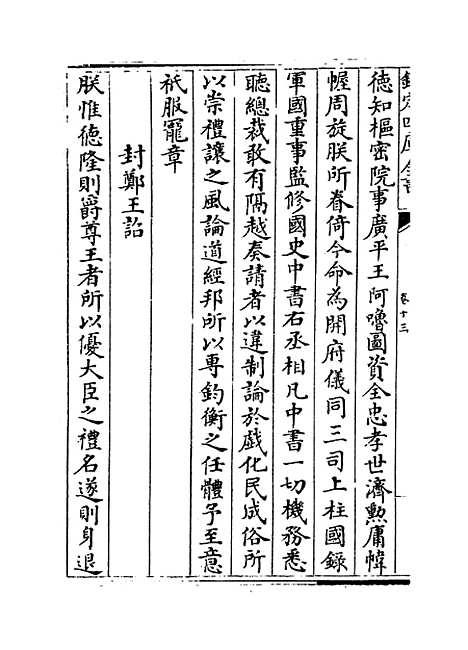 欽定四庫全書
卷十三
德知樞密院事廣平王阿嚕圖資全忠孝世濟勲庸幃
幄周旋朕所眷倚今命為開府儀同三司上柱國錄
軍國重事監修國史中書右丞相凡中書一切機務悉
聽總裁敢有隔越奏請者以違制論於戯化民成俗所
以崇禮讓之風論道經邦所以專鈞衡之任體予至意
祇服寵章
封鄭王詔
朕惟德隆則爵尊王者所以優大臣之禮名遂則身退